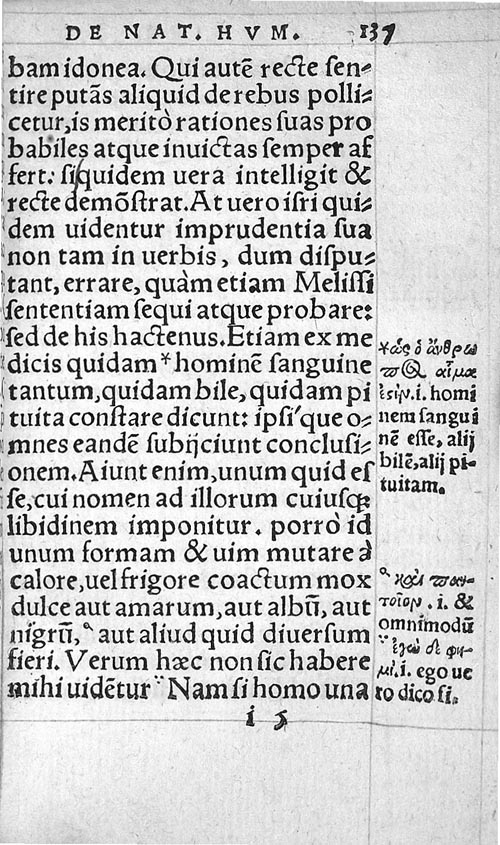 DE NAT. HVM. 137
bam idonea. Qui autẽ recte sen⸗
tire putãs aliquid de rebus polli⸗
cetur, is meritò rationes suas pro
babiles atque inuictas semper af
fert: siquidem uera intelligit &
recte demõstrat. At uero isri qui⸗
dem uidentur imprudentia sua
non tam in uerbis, dum dispu⸗
tant, errare, quàm etiam Melissi
sententiam sequi atque probare:
sed de his hactenus. Etiam ex me
dicis quidam * hominẽ sanguine
tantum, quidam bile, quidam pi
tuita constare dicunt: ipsi'que o⸗
mnes eandẽ subijciunt conclusi⸗
onem. Aiunt enim, unum quid es
se, cui nomen ad illorum cuiusq;
libidinem imponitur. porrò id
unum formam & uim mutare à
calore, uel frigore coactum mox
dulce aut amarum, aut albũ, aut
nigrũ, aut aliud quid diuersum
fieri. Verum hæc non sic habere
mihi uidẽtur Nam si homo una
i 5
*ὡς ὁ ἄνθρω
πος αἷμα
ἐσιν. i. homi
nem sangui
nẽ esse, alij
bilẽ, alij pi⸗
tuitam.
καὶ παν⸗
τοῖον. i. &
omnimodũ
ἐγὼ δὲ φη⸗
μι. i. ego ue
ro dico si.